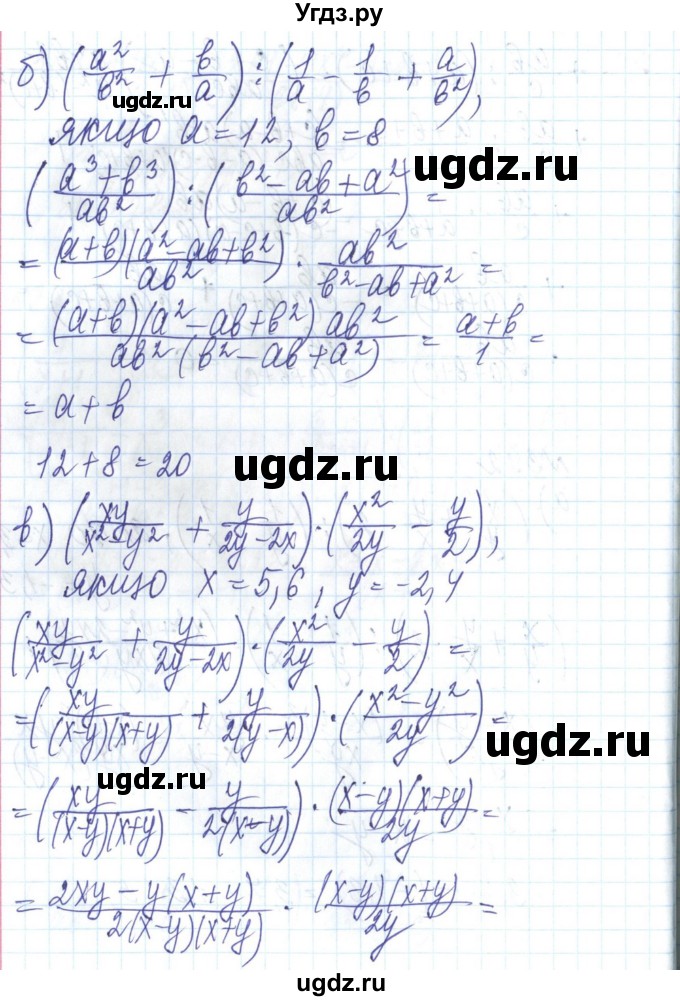 Угдз.ру
б) (a²/b² + b/a) : (1/a - 1/b + a/b²),
угдз.ру
якщо a = 12, b = 8
ugdz.ru
((a³+b³)/ab²) : ((b²-ab+a²)/ab²) =
= (a+b)(a²-ab+b²)/ab² · ab²/(b²-ab+a²) =
= (a+b)(a²-ab+b²) ab²/ab²(b²-ab+a²) = (a+b)/1 =
= a + b
12 + 8 = 20
ugdz.ru
в) (xy/(x²-y²) + y/(2y-2x)) · (x²/2y - y/2),
якщо x = 5,6, y = -2,4
(xy/(x²-y²) + y/(2y-2x)) · (x²/2y - y/2) =
= (xy/(x-y)(x+y) + y/2(y-x)) · ((x²-y²)/2y) =
ugdz.ru
ugdz.ru
= (xy/(x-y)(x+y) - y/2(x-y)) · (x-y)(x+y)/2y =
= (2xy-y(x+y))/2(x-y)(x+y) · (x-y)(x+y)/2y =
ugdz.ru